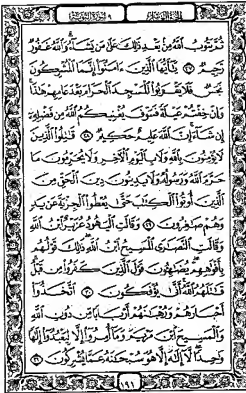 الجزء العاشر ٩ سورة التوبة
ثُمَّ يَتُوبُ اللَّهُ مِنْ بَعْدِ ذَلِكَ عَلَى مَن يَشَاءُ وَاللَّهُ غَفُورٌ
رَّحِيمٌ ٢٧ يَا أَيُّهَا الَّذِينَ ءَامَنُوا إِنَّمَا الْمُشْرِكُونَ
نَجَسٌ فَلَا يَقْرَبُوا الْمَسْجِدَ الْحَرَامَ بَعْدَ عَامِهِمْ هَٰذَا
وَإِنْ خِفْتُمْ عَيْلَةً فَسَوْفَ يُغْنِيكُمُ اللَّهُ مِن فَضْلِهِ
إِن شَاءَ إِنَّ اللَّهَ عَلِيمٌ حَكِيمٌ ٢٨ قَاتِلُوا الَّذِينَ
لَا يُؤْمِنُونَ بِاللَّهِ وَلَا بِالْيَوْمِ الْآخِرِ وَلَا يُحَرِّمُونَ مَا
حَرَّمَ اللَّهُ وَرَسُولُهُ وَلَا يَدِينُونَ دِينَ الْحَقِّ مِنَ
الَّذِينَ أُوتُوا الْكِتَابَ حَتَّى يُعْطُوا الْجِزْيَةَ عَن يَدٍ
وَهُمْ صَاغِرُونَ ٢٩ وَقَالَتِ الْيَهُودُ عُزَيْرٌ ابْنُ اللَّهِ
وَقَالَتِ النَّصَارَى الْمَسِيحُ ابْنُ اللَّهِ ذَلِكَ قَوْلُهُم
بِأَفْوَاهِهِمْ يُضَاهِئُونَ قَوْلَ الَّذِينَ كَفَرُوا مِن قَبْلُ
قَاتَلَهُمُ اللَّهُ أَنَّى يُؤْفَكُونَ ٣٠ اتَّخَذُوا
أَحْبَارَهُمْ وَرُهْبَانَهُمْ أَرْبَابًا مِّن دُونِ اللَّهِ
وَالْمَسِيحَ ابْنَ مَرْيَمَ وَمَا أُمِرُوا إِلَّا لِيَعْبُدُوا إِلَٰهًا
وَاحِدًا لَّا إِلَٰهَ إِلَّا هُوَ سُبْحَانَهُ عَمَّا يُشْرِكُونَ ٣١
١٩١